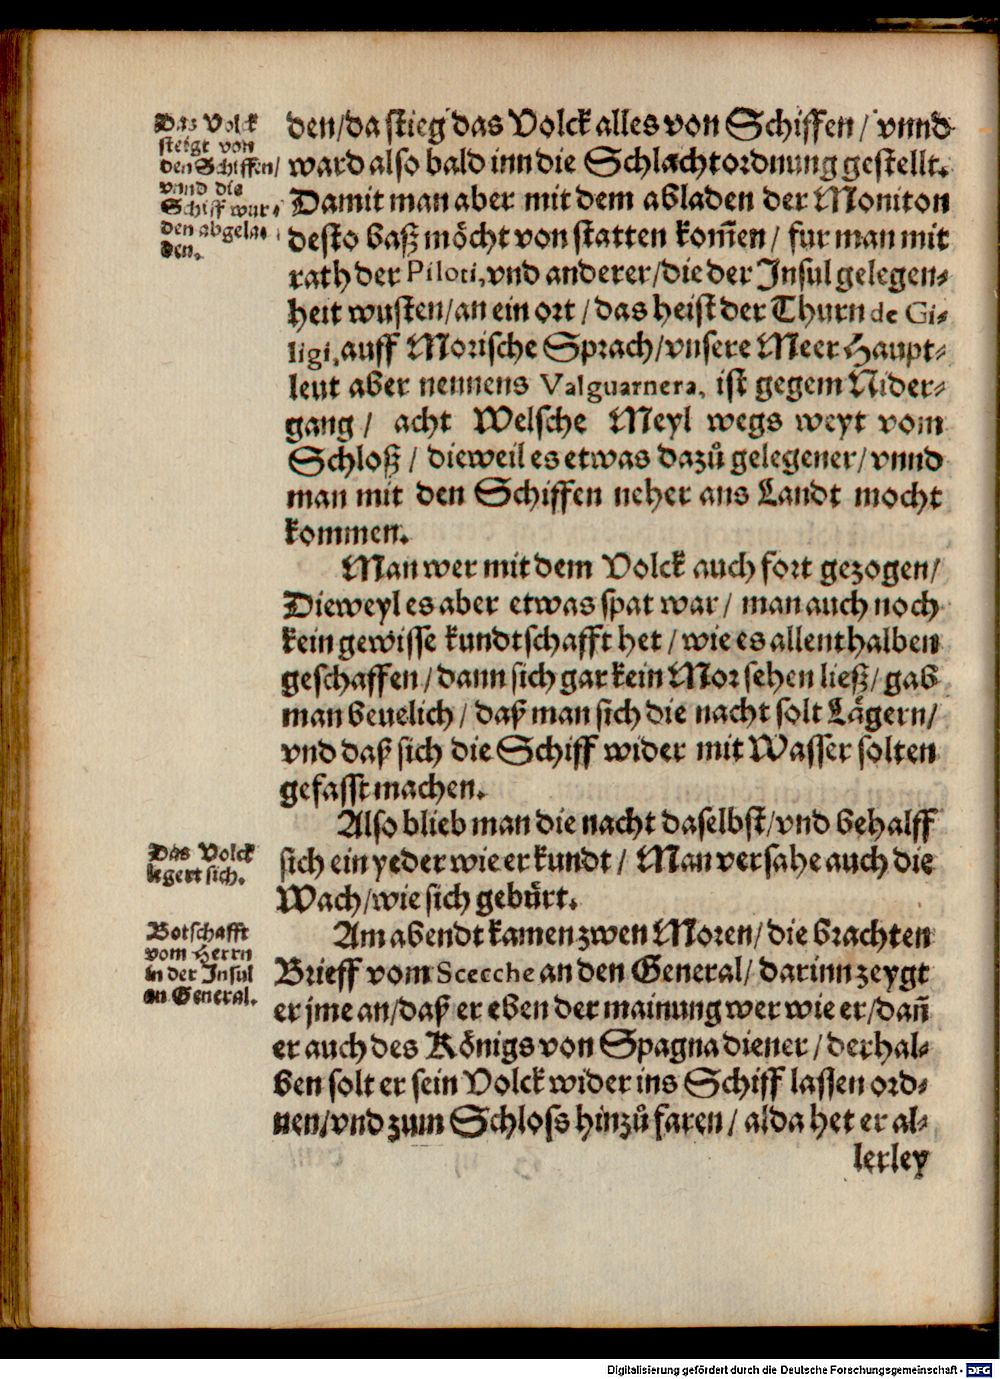 Das Volck
steigt von
den Schiffen/
vnnd die
Schiff wur-
den abgela-
den.
den/da stieg das Volck alles von Schiffen/ vnnd
ward also bald inn die Schlachtordnung gestellt.
Damit man aber mit dem abladen der Moniton
desto baß möcht von statten kom̃en/ fur man mit
rath der Piloti, vnd anderer/die der Insul gelegen-
heit wusten/an ein ort/das heist der Thurn de Gi-
ligi, auff Morische Sprach/vnsere Meer Haupt-
leut aber nennens Valguarnera, ist gegem Nider-
gang/ acht Welsche Meyl wegs weyt vom
Schloß/ dieweil es etwas dazů gelegener/vnnd
man mit den Schiffen neher ans Landt mocht
kommen.
Man wer mit dem Volck auch fort gezogen/
Dieweyl es aber etwas spat war/ man auch noch
kein gewisse kundtschafft het/wie es allenthalben
geschaffen/dann sich gar kein Mor sehen ließ/ gab
man beuelich/ daß man sich die nacht solt Lägern/
vnd daß sich die Schiff wider mit Wasser solten
gefasst machen.
Also blieb man die nacht daselbst/vnd behalff
Das Volck
legert sich.
sich ein yeder wie er kundt/ Man versahe auch die
Wach/wie sich gebürt.
Botschafft
vom Herrn
in der Insul
an General.
Am abendt kamen zwen Moren/die brachten
Brieff vom Scecche an den General/ darinn zeygt
er jme an/daß er eben der mainung wer wie er/dañ
er auch des Königs von Spagna diener/derhal-
ben solt er sein Volck wider ins Schiff lassen ord-
nen/vnd zum Schloss hinzů faren/ alda het er al-
lerley
Digitalisierung gefördert durch die Deutsche Forschungsgemeinschaft - DFG